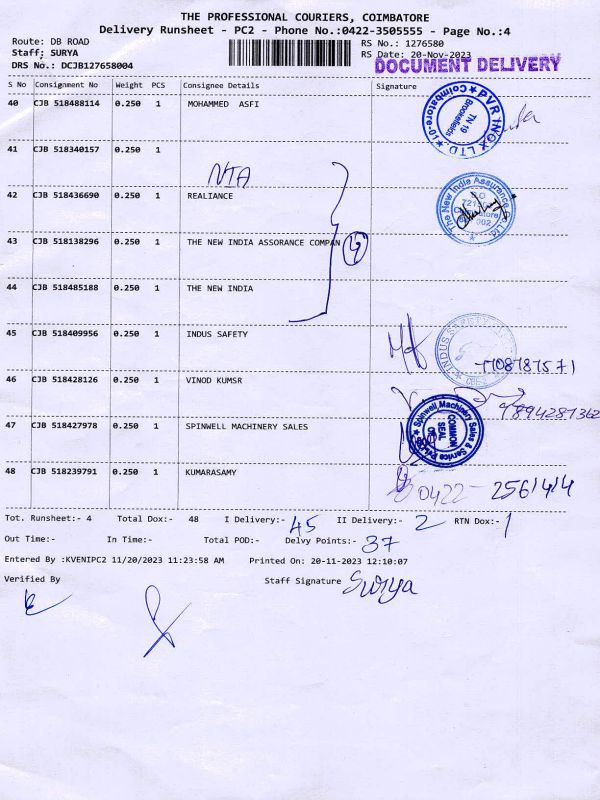 THE PROFESSIONAL COURIERS, COIMBATORE
Delivery Runsheet - PC2 - Phone No.:0422-3505555 - Page No.:4
Route: DB ROAD
RS No.: 1276580
Staff: SURYA
RS Date: 20-Nov-2023
DRS No.: DCJB127658004
DOCUMENT DELIVERY
S No Consignment No Weight PCS Consignee Details Signature
40 CJB 518488114 0.250 1 MOHAMMED ASFI
PVR INOX LTD
Coimbatore
TN 19
Brookefields
41 CJB 518340157 0.250 1
NIA
42 CJB 518436690 0.250 1 REALIANCE
The New India Assurance
43 CJB 518138296 0.250 1 THE NEW INDIA ASSORANCE COMPAN
4
44 CJB 518485188 0.250 1 THE NEW INDIA
45 CJB 518409956 0.250 1 INDUS SAFETY
INDUS
46 CJB 518428126 0.250 1 VINOD KUMSR
9894287362
47 CJB 518427978 0.250 1 SPINWELL MACHINERY SALES
Spinwell Machinery Sales & Service
COMMON
SEAL
48 CJB 518239791 0.250 1 KUMARASAMY
0422 - 2561414
Tot. Runsheet:- 4 Total Dox:- 48 I Delivery:- 45 II Delivery:- 2 RTN Dox:- 1
Out Time:- In Time:- Total POD:- Delvy Points:- 37
Entered By :KVENIPC2 11/20/2023 11:23:58 AM Printed On: 20-11-2023 12:10:07
Verified By Staff Signature Surya